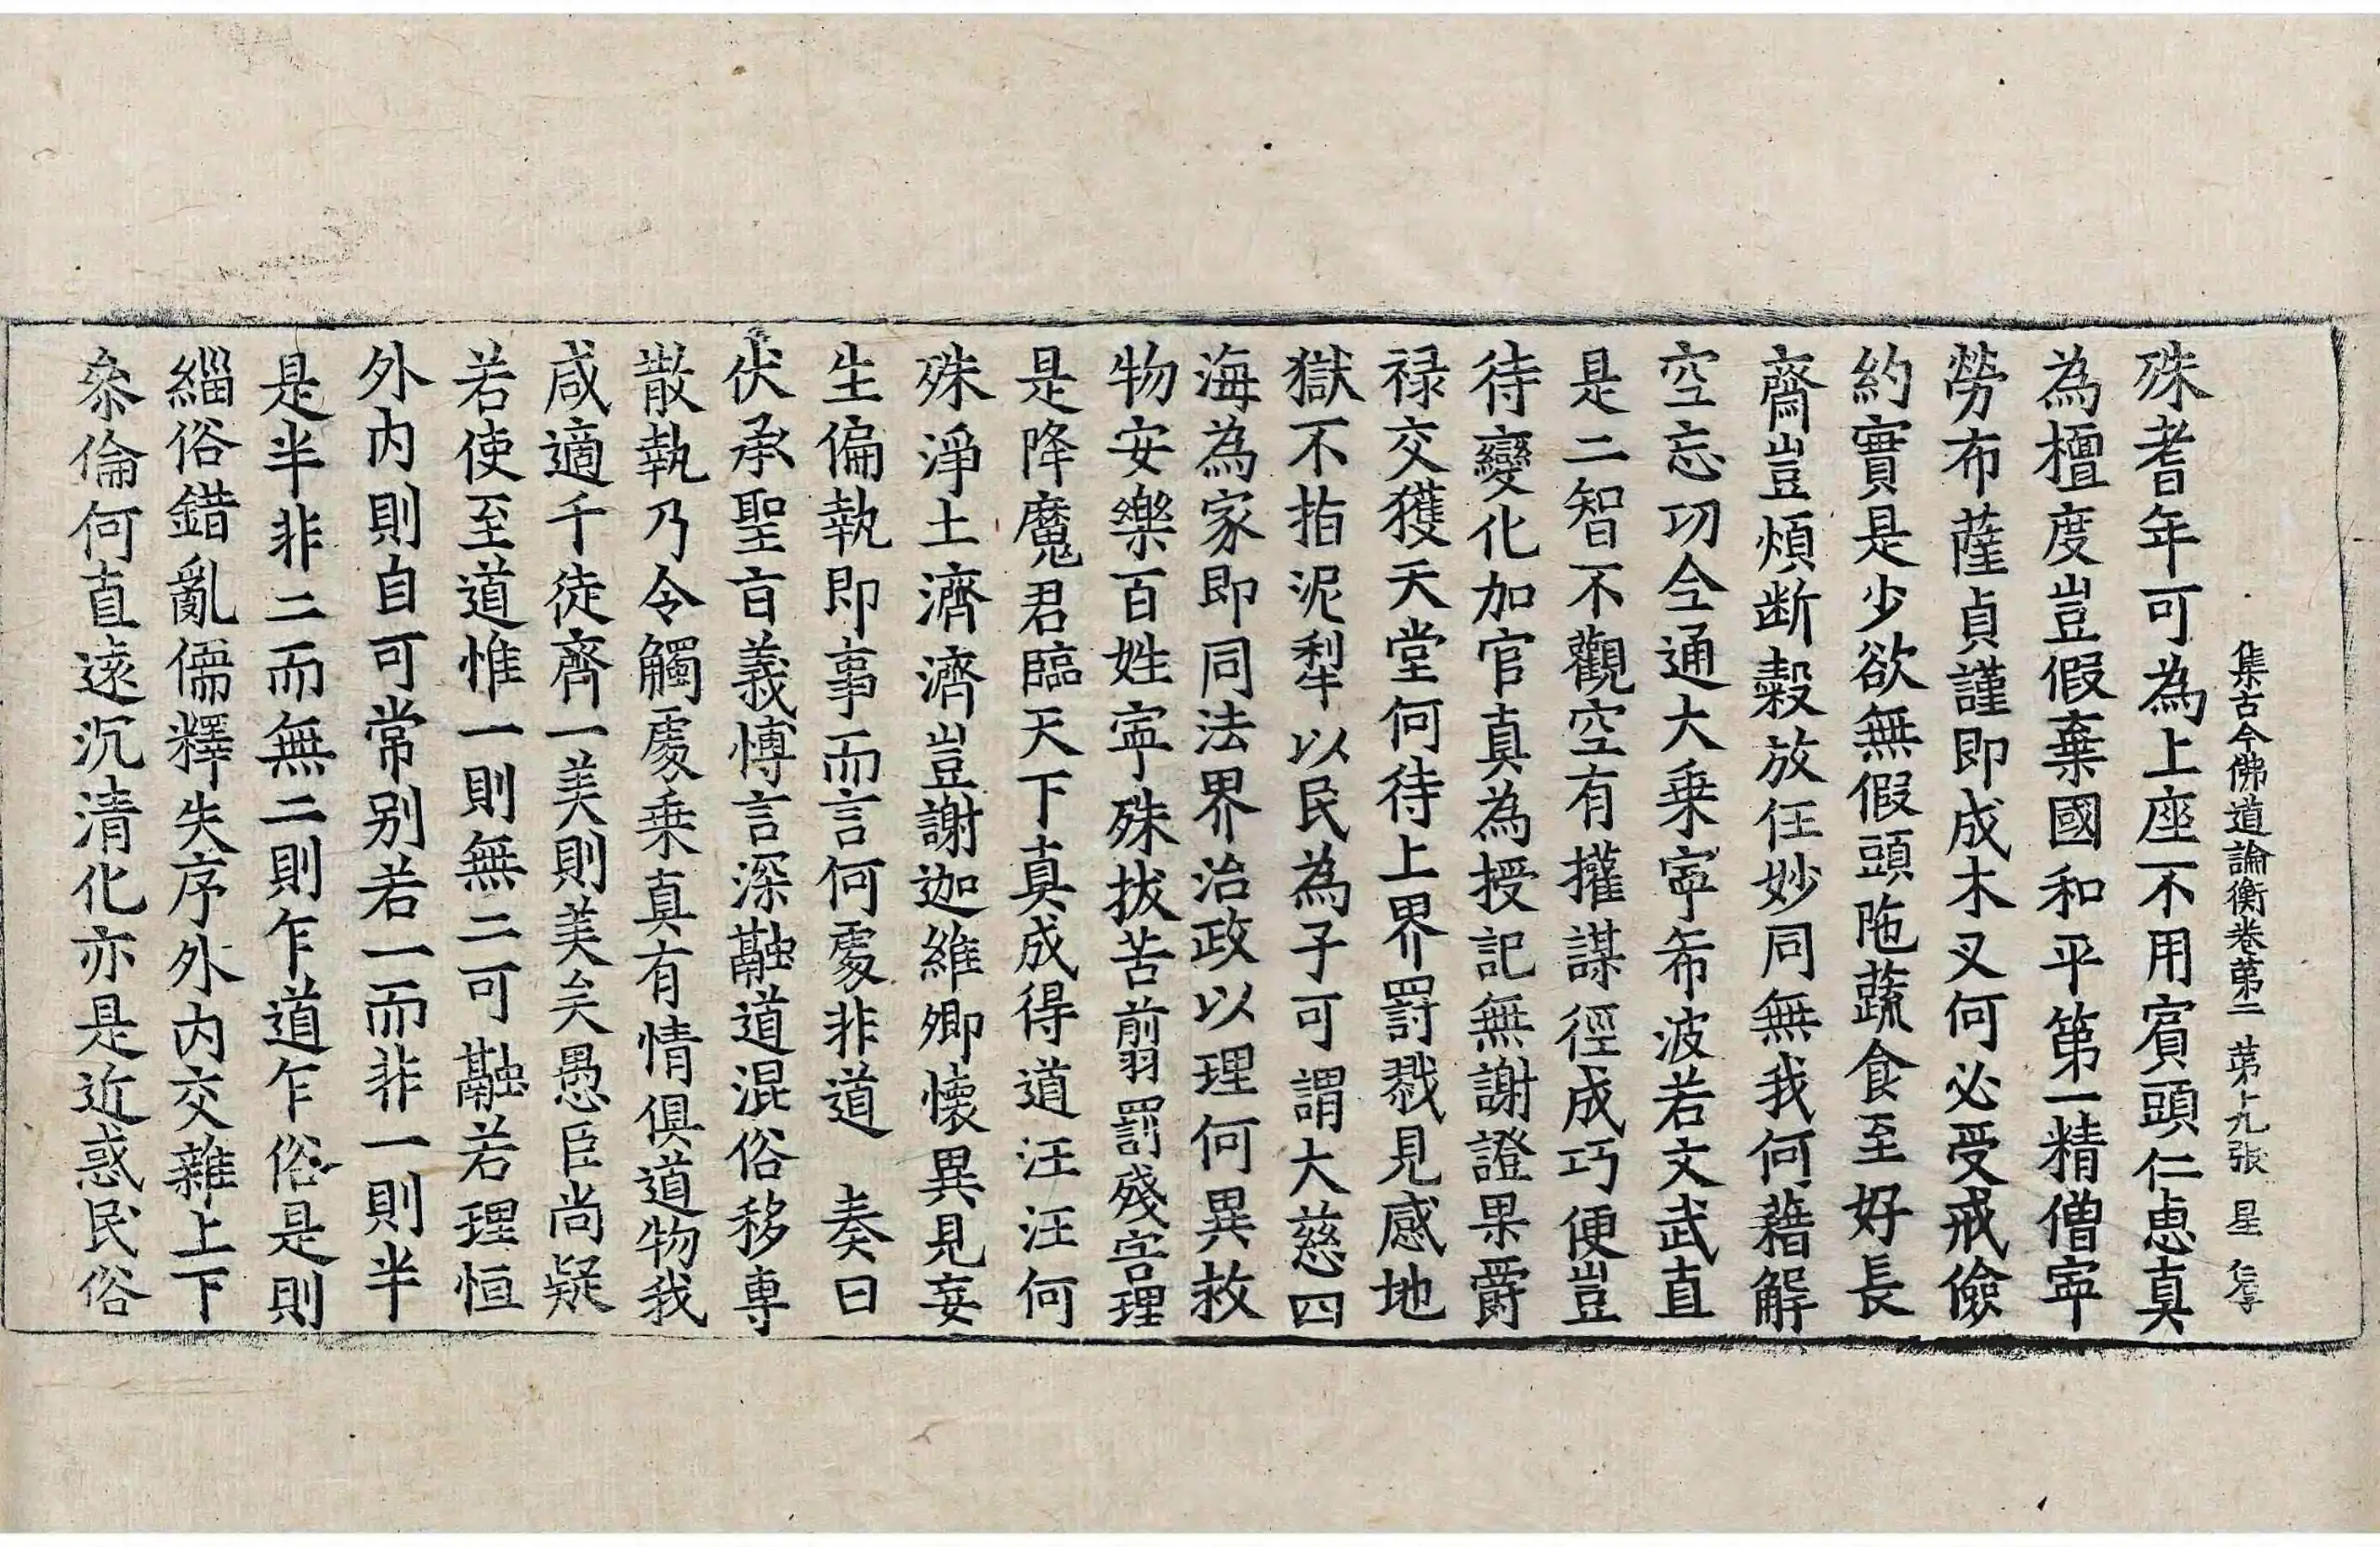 集古今佛道論衡卷第二　第十九張　星
殊耆年可為上座不用賓頭仁恵真
為檀度豈假棄國和平第一精僧寧
勞布薩貞謹即成木叉何必受戒儉
約實是少欲無假頭陁蔬食至好長
齋豈煩断穀放任妙同無我何藉解
空忘功全通大乗寧希波若文武直
是二智不觀空有權謀徑成巧便豈
待變化加官真為授記無謝證果爵
禄交獲天堂何待上界罰戮見感地
獄不指泥犁以民為子可謂大慈四
海為家即同法界治政以理何異救
物安樂百姓寧殊拔苦剪罰殘害理
是降魔君臨天下真成得道汪汪何
殊淨土濟濟豈謝迦維卿懷異見妄
生偏執即事而言何處非道　奏曰
伏承聖旨義博言深融道混俗移専
散執乃令觸處乗真有情俱道物我
咸適千徒齊一美則美矣愚臣尚疑
若使至道惟一則無二可融若理恒
外内則自可常別若一而非一則半
是半非二而無二則乍道乍俗是則
緇俗錯亂儒釋失序外内交雜上下
叅倫何直遠沉清化亦是近惑民俗